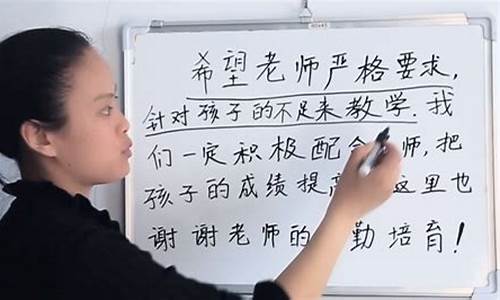 希望老师严格要求,
针对孩子的不足来教学.我
们一定积极配合 师,把
孩子的成绩提高 这里也
谢谢老师的 勤培育!